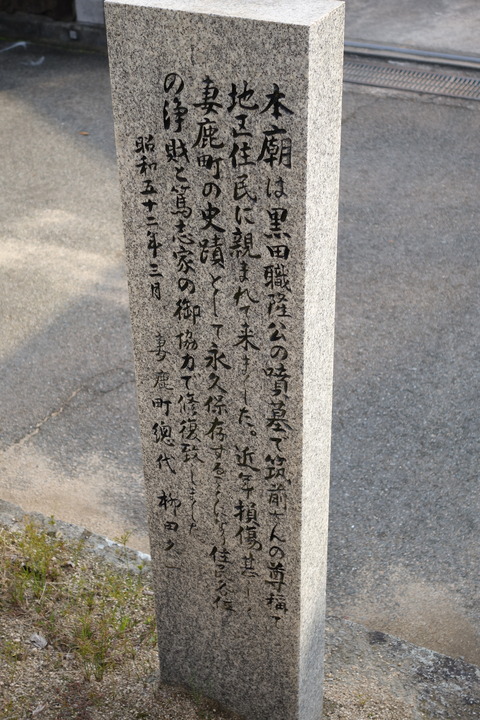 本廟は黒田職隆公の墳墓で筑前さんの尊称で
地区住民に親まれて来ました。近年損傷甚しく
妻鹿町の史蹟として永久保存する 住民各位
の浄財と篤志家の御協力で修復致しました
昭和五十二年三月 妻鹿町總代 柳田